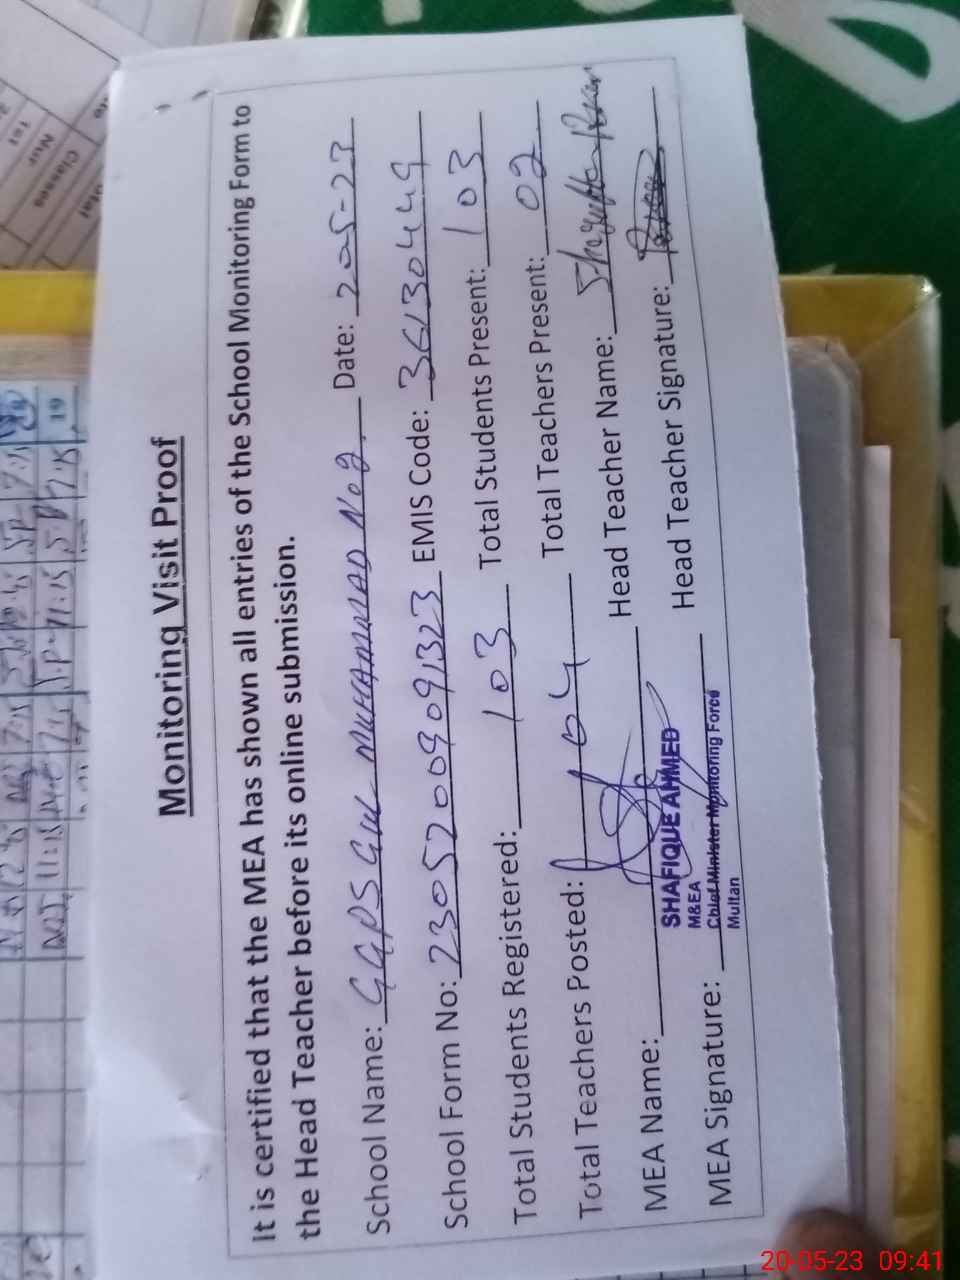 Monitoring Visit Proof
It is certified that the MEA has shown all entries of the School Monitoring Form to
the Head Teacher before its online submission.
School Name: GGPS Gul MUHAMMAD No 2 Date: 20-5-23
School Form No: 23052009091323 EMIS Code: 36130449
Total Students Registered: 103 Total Students Present: 103
Total Teachers Posted: 04 Total Teachers Present: 02
MEA Name: Head Teacher Name: Shagufta
SHAFIQUE AHMED
M&EA
MEA Signature: Head Teacher Signature:
Chief Minister Monitoring Force
Multan
Classes
Nur
1st
20-05-23 09:41